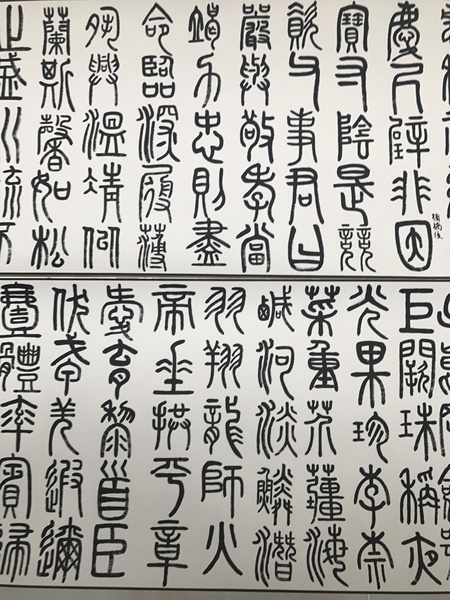 慶尺璧非因
寶寸陰是競
資父事君曰
嚴與敬孝當
竭力忠則盡
命臨深履薄
夙興溫靖似
蘭斯馨如松
之盛川流不
巨闕珠稱夜
光果珍李柰
菜重芥薑海
鹹河淡鱗潛
羽翔龍師火
帝垂拱平章
愛育黎首臣
伏戎羌遐邇
壹體率賓歸